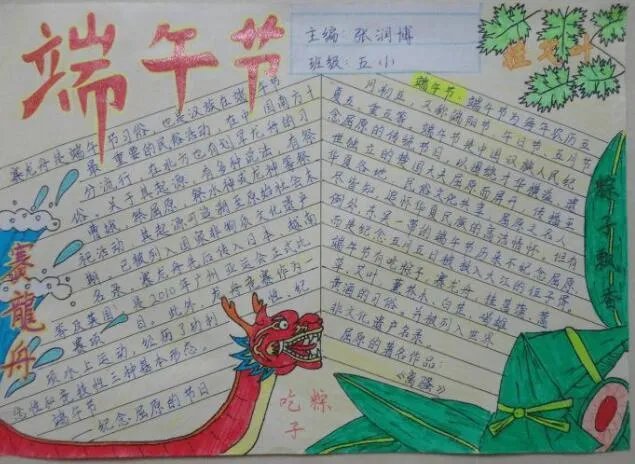 端午节
主编：张润博
班级：五小
挂艾叶
赛龙舟是端午节习俗，也是汉族在端午节
最重要的民俗活动，在中国南方十
分流行，在北方也有划旱龙舟的习
俗。关于其起源，有多种说法，有祭
曹娥，祭屈原，祭水神或龙神等祭
祀活动，其起源可追溯至原始社会末
期。已被列入国家非物质文化遗产
名录。赛龙舟先后传入日本、越南
等及英国，是2010年广州亚运会正式比
赛项目。此外，龙舟竞赛作为一
项水上运动，
性和竞技性三种基本形态。
端午节
纪念屈原的节日
赛龍舟
端午节：端午节为每年农历五
月初五，又称端阳节、午日节、五月节
夏五、重五等。端午节是中国汉族人民纪
念屈原的传统节日，以围绕才华横溢、遗
世独立的楚国大夫屈原而展开，传播至
华夏各地，民俗文化共享，屈原之名人
尽皆知，追怀华夏民族的高洁情怀。但有
例外东吴一带的端午节历来不纪念屈原
而是纪念五月五日被投入大江的伍子胥，
端午节有吃粽子，赛龙舟，挂菖蒲、蒿
草、艾叶，薰苍术、白芷，喝雄
黄酒的习俗。并被列入世界
非文化遗产名录。
屈原的著名作品：
《离骚》
粽子飘香
吃粽子